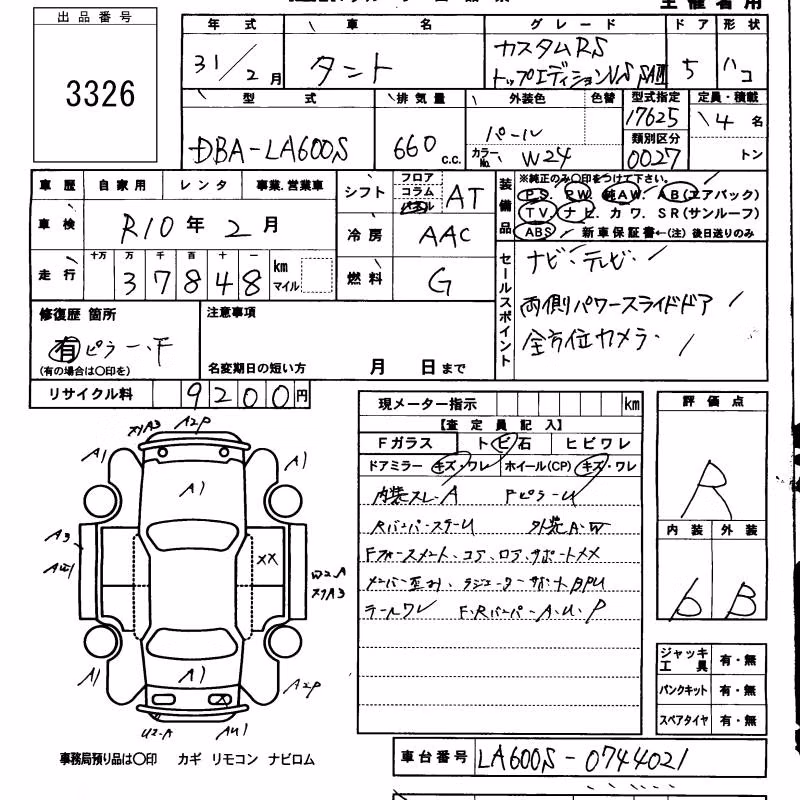 出品番号
3326
年 式 車 名 グレード ドア 形状
31/2月 タント カスタムRS トップエディションVS SAⅢ 5 ハコ
型 式 排気量 外装色 色替 型式指定 定員・積載
DBA-LA600S 660 c.c. パール 17625 4名
カラーNo. W24 類別区分 0027 トン
車歴 自家用 レンタ 事業.営業車
車検 R10年 2月
走行 十万 万 千 百 十 一
37848 km マイル
シフト フロア コラム AT
冷房 AAC
燃料 G
装備品 ※純正のみ〇印をつけて下さい。
PS. PW. 純AW. AB(エアバック)
TV. ナビ. カワ. SR(サンルーフ)
ABS 新車保証書←(注) 後日送りのみ
セールスポイント
ナビ・テレビ・
両側パワースライドドア
全方位カメラ・
修復歴 箇所
有 ピラー・F
(有の場合は〇印を)
注意事項
名変期日の短い方 月 日まで
リサイクル料 9200円
現メーター指示 km
【査定員記入】
Fガラス トビ石 ヒビワレ
ドアミラー キズ・ワレ ホイール(CP) キズ・ワレ
内装スレ・A FピラーU
RバンパーステーU 外装A・W
Fフォースメント、コア、ロア、サポートXX
メンバー歪み、ラジエーターサポートBPU
テールワレ F・RバンパーA・U・P
評価点
R
内装 外装
b B
ジャッキ 工具 有・無
パンクキット 有・無
スペアタイヤ 有・無
A2P
A1
A1
A1
XX
W2-A
A1
A1
A2P
U2-A
AU1
事務局預り品は〇印 カギ リモコン ナビロム
車台番号 LA600S-0744021